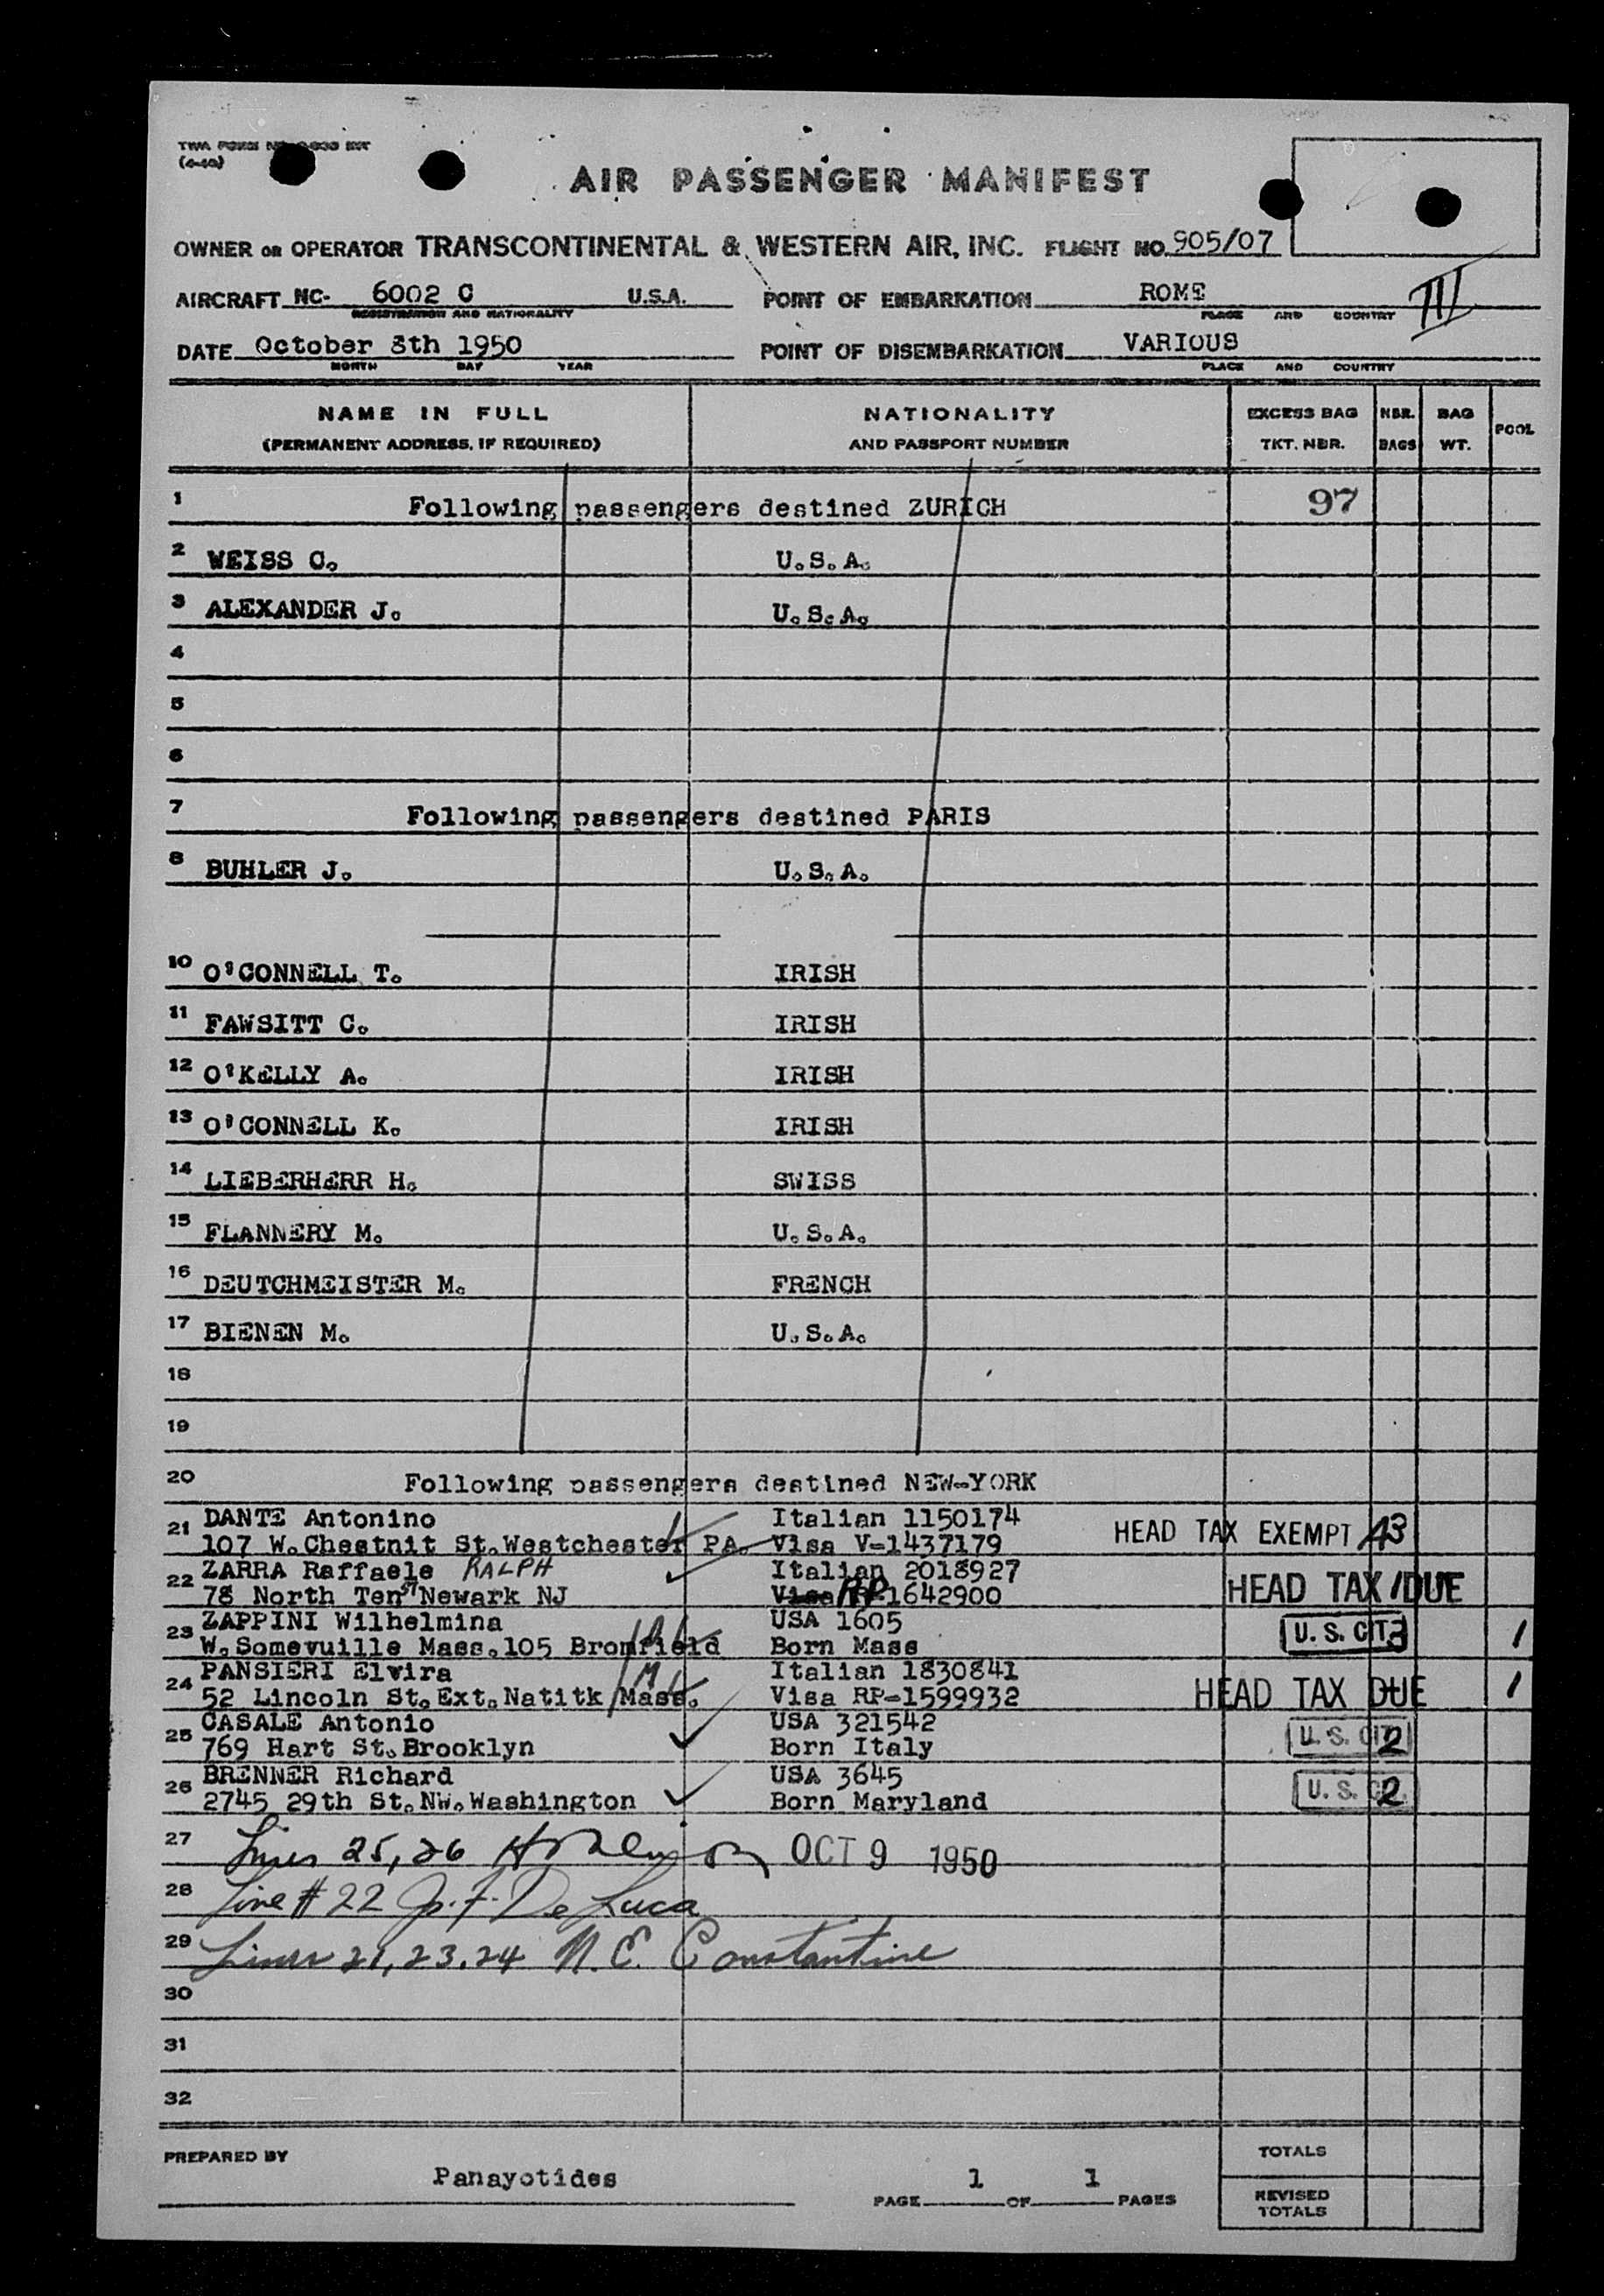 (4-49)
AIR PASSENGER MANIFEST
OWNER OR OPERATOR TRANSCONTINENTAL & WESTERN AIR, INC. FLIGHT NO. 905/07
AIRCRAFT NC- 6002 C U.S.A. POINT OF EMBARKATION ROME III
REGISTRATION AND NATIONALITY PLACE AND COUNTRY
DATE October 8th 1950 POINT OF DISEMBARKATION VARIOUS
MONTH DAY YEAR PLACE AND COUNTRY
NAME IN FULL NATIONALITY EXCESS BAG NBR. BAG POOL
(PERMANENT ADDRESS, IF REQUIRED) AND PASSPORT NUMBER TKT. NBR. BAGS WT.
1 Following passengers destined ZURICH 97
2 WEISS C. U.S.A.
3 ALEXANDER J. U.S.A.
4
5
6
7 Following passengers destined PARIS
8 BUHLER J. U.S.A.
10 O'CONNELL T. IRISH
11 FAWSITT C. IRISH
12 O'KELLY A. IRISH
13 O'CONNELL K. IRISH
14 LIEBERHERR H. SWISS
15 FLANNERY M. U.S.A.
16 DEUTCHMEISTER M. FRENCH
17 BIENEN M. U.S.A.
18
19
20 Following passengers destined NEW-YORK
21 DANTE Antonino Italian 1150174
107 W.Chestnit St.Westchester PA. Visa V-1437179 HEAD TAX EXEMPT A3
22 ZARRA Raffaele RALPH Italian 2018927
78 North Ten St Newark NJ Visa RP-1642900 HEAD TAX DUE
23 ZAPPINI Wilhelmina USA 1605
W.Somevuille Mass.105 Bromfield Born Mass U.S. CIT. 3 1
24 PANSIERI Elvira Italian 1830841
52 Lincoln St.Ext.Natitk Mass. Visa RP-1599932 HEAD TAX DUE 1
25 CASALE Antonio USA 321542
769 Hart St.Brooklyn Born Italy U.S. CIT. 2
26 BRENNER Richard USA 3645
2745 29th St.NW.Washington Born Maryland U.S. CIT. 2
27 Lines 25,26 OCT 9 1950
28 Line # 22 Jo. F. De Luca
29 Lines 21,23,24 N.E. Constantine
30
31
32
PREPARED BY Panayotides PAGE 1 OF 1 PAGES
TOTALS
REVISED TOTALS